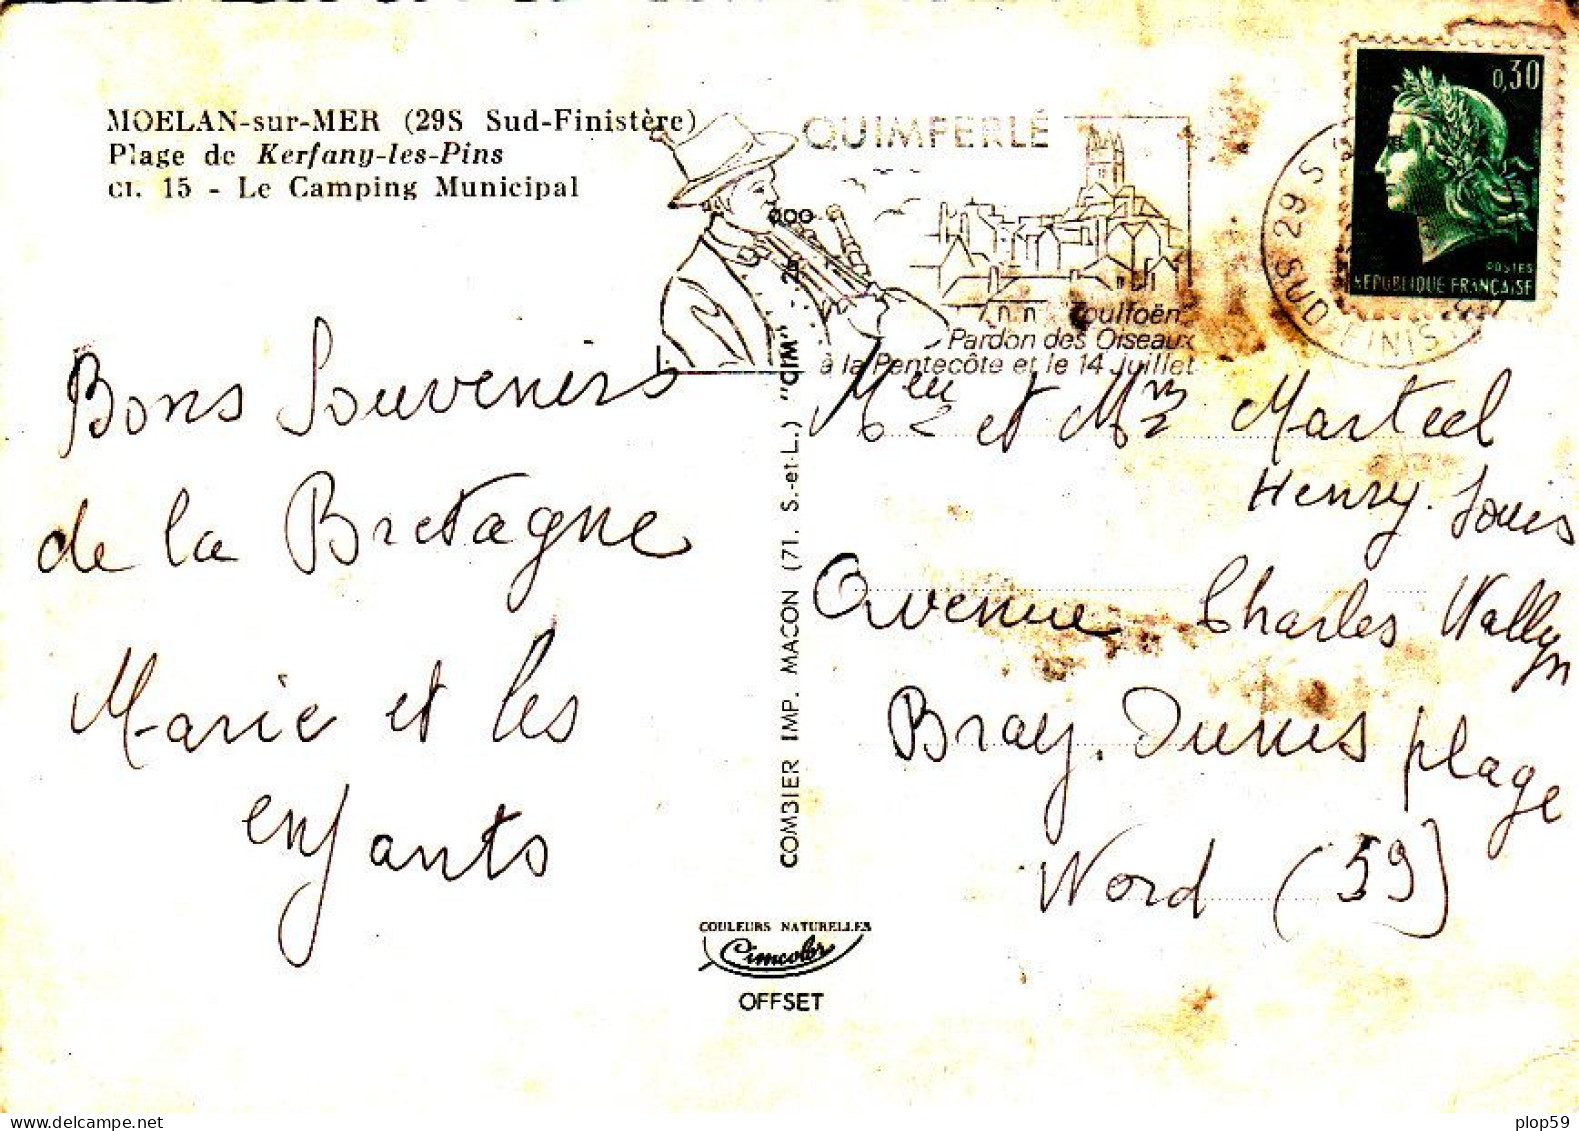 MOELAN-sur-MER (29S Sud-Finistère)
Plage de Kerfany-les-Pins
CL. 15 - Le Camping Municipal
QUIMPERLÉ
Toulfoën
Pardon des Oiseaux
à la Pentecôte et le 14 Juillet
29 S
SUD FINIS
0,30
POSTES
REPUBLIQUE FRANÇAISE
Bons Souvenirs
de la Bretagne
Marie et les
enfants
COMBIER IMP. MACON (71. S.-et-L.) "CIM"
COULEURS NATURELLES
Cimcolor
OFFSET
et Marteel
Henry-Louis
Avenue Charles Wallyn
Bray-Dunes plage
Nord (59)
plop59